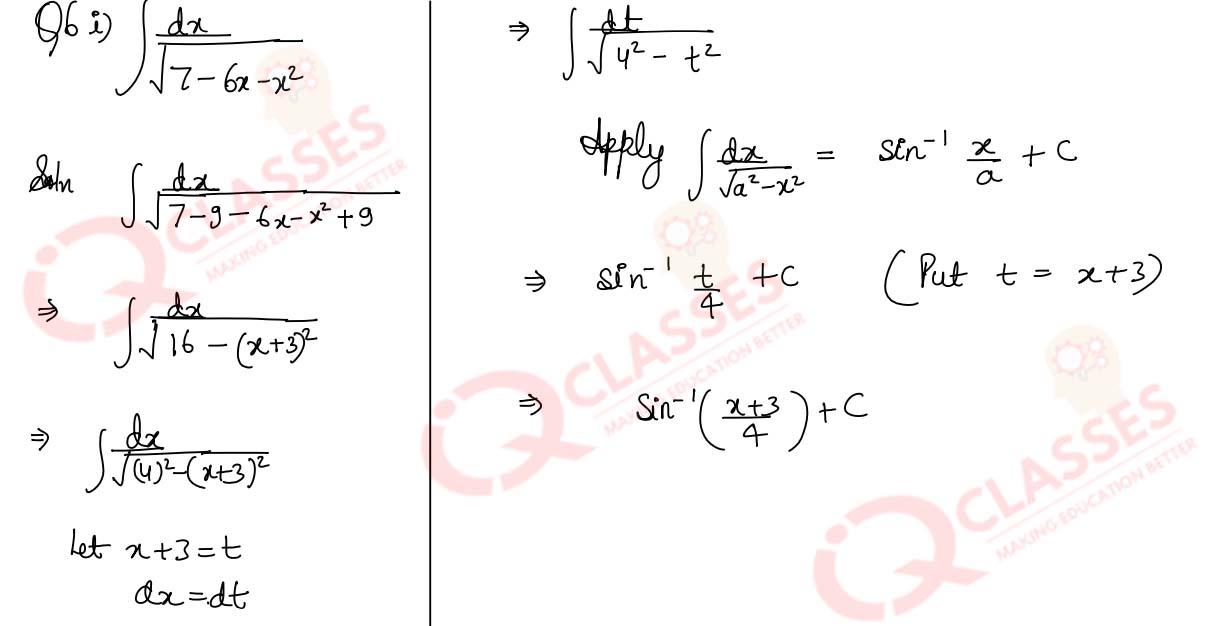 Q6 i) ∫ dx / √(7 – 6x – x²)
Soln ∫ dx / √(7 – 9 – 6x – x² + 9)
⇒ ∫ dx / √(16 – (x+3)²)
⇒ ∫ dx / √((4)² – (x+3)²)
Let x+3 = t
dx = dt
⇒ ∫ dt / √(4² – t²)
Apply ∫ dx / √(a² – x²) = sin⁻¹ x/a + C
⇒ sin⁻¹ t/4 + C (Put t = x+3)
⇒ Sin⁻¹ ((x+3)/4) + C
IQ CLASSES
MAKING EDUCATION BETTER
IQ CLASSES
MAKING EDUCATION BETTER
IQ CLASSES
MAKING EDUCATION BETTER